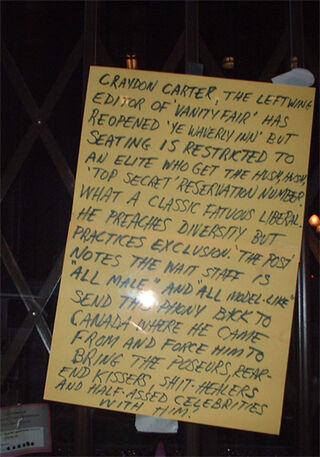 CRAYDON CARTER, THE LEFTWING
EDITOR OF 'VANITY FAIR' HAS
REOPENED 'YE WAVERLY INN' BUT
SEATING IS RESTRICTED TO
AN ELITE WHO GET THE HUSH, HUSH,
'TOP SECRET' RESERVATION NUMBER.
WHAT A CLASSIC FATUOUS LIBERAL.
HE PREACHES DIVERSITY BUT
PRACTICES EXCLUSION. 'THE POST'
NOTES THE WAIT STAFF IS
"ALL MALE" AND "ALL MODEL-LIKE"
SEND THIS PHONY BACK TO
CANADA WHERE HE CAME
FROM AND FORCE HIM TO
BRING THE POSEURS, REAR-
END KISSERS, SHIT-HEALERS
AND HALF-ASSED CELEBRITIES
WITH HIM!